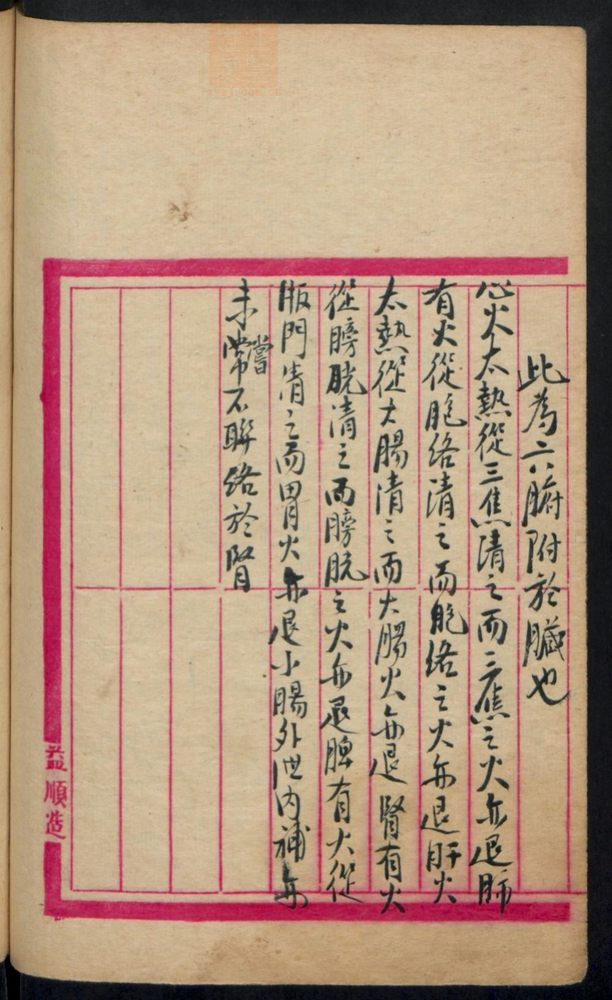 此為六腑附於臟也
心火太熱從三焦清之而三焦之火亦退肺
有火從胞絡清之而胞絡之火亦退肝火
太熱從大腸清之而大腸火亦退腎有火
從膀胱清之而膀胱之火亦退脾有火從
版門清之而胃火亦退小腸外泄內補亦
未常嘗不聯絡於腎
益順造